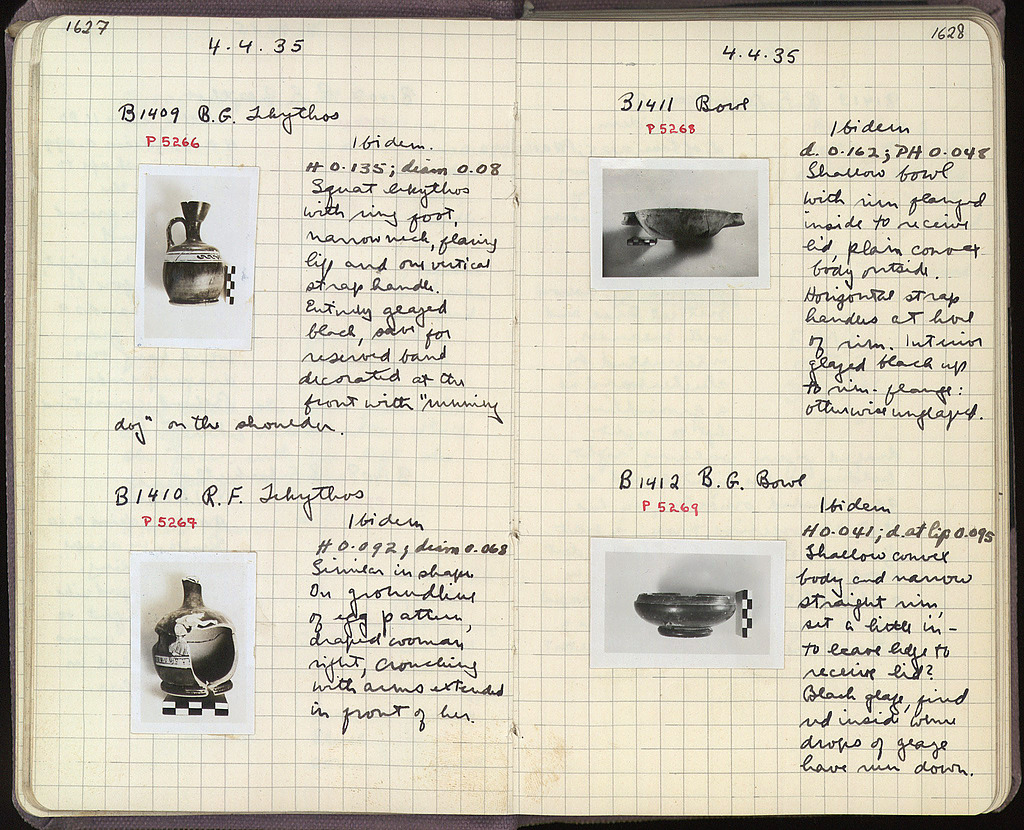 1627
4.4.35
B1409 B.G. Lekythos
P 5266
Ibidem.
H 0.135; diam 0.08
Squat lekythos
with ring foot,
narrow neck, flaring
lip and one vertical
strap handle.
Entirely glazed
black, save for
reserved band
decorated at the
front with "running
dog" on the shoulder.
B1410 R.F. Lekythos
P 5267
Ibidem
H 0.092; diam 0.068
Similar in shape
On groundline
of egg pattern,
draped woman
right, crouching
with arms extended
in front of her.
1628
4.4.35
B1411 Bowl
P 5268
Ibidem
d. 0.162; PH 0.048
Shallow bowl
with rim flanged
inside to receive
lid, plain convex
body outside.
Horizontal strap
handles at level
of rim. Interior
glazed black up
to rim-flange:
otherwise unglazed.
B1412 B.G. Bowl
P 5269
Ibidem
H 0.041; d. at lip 0.095
Shallow convex
body and narrow
straight rim,
set a little in-
to leave ledge to
receive lid?
Black glaze, fired
red inside where
drops of glaze
have run down.